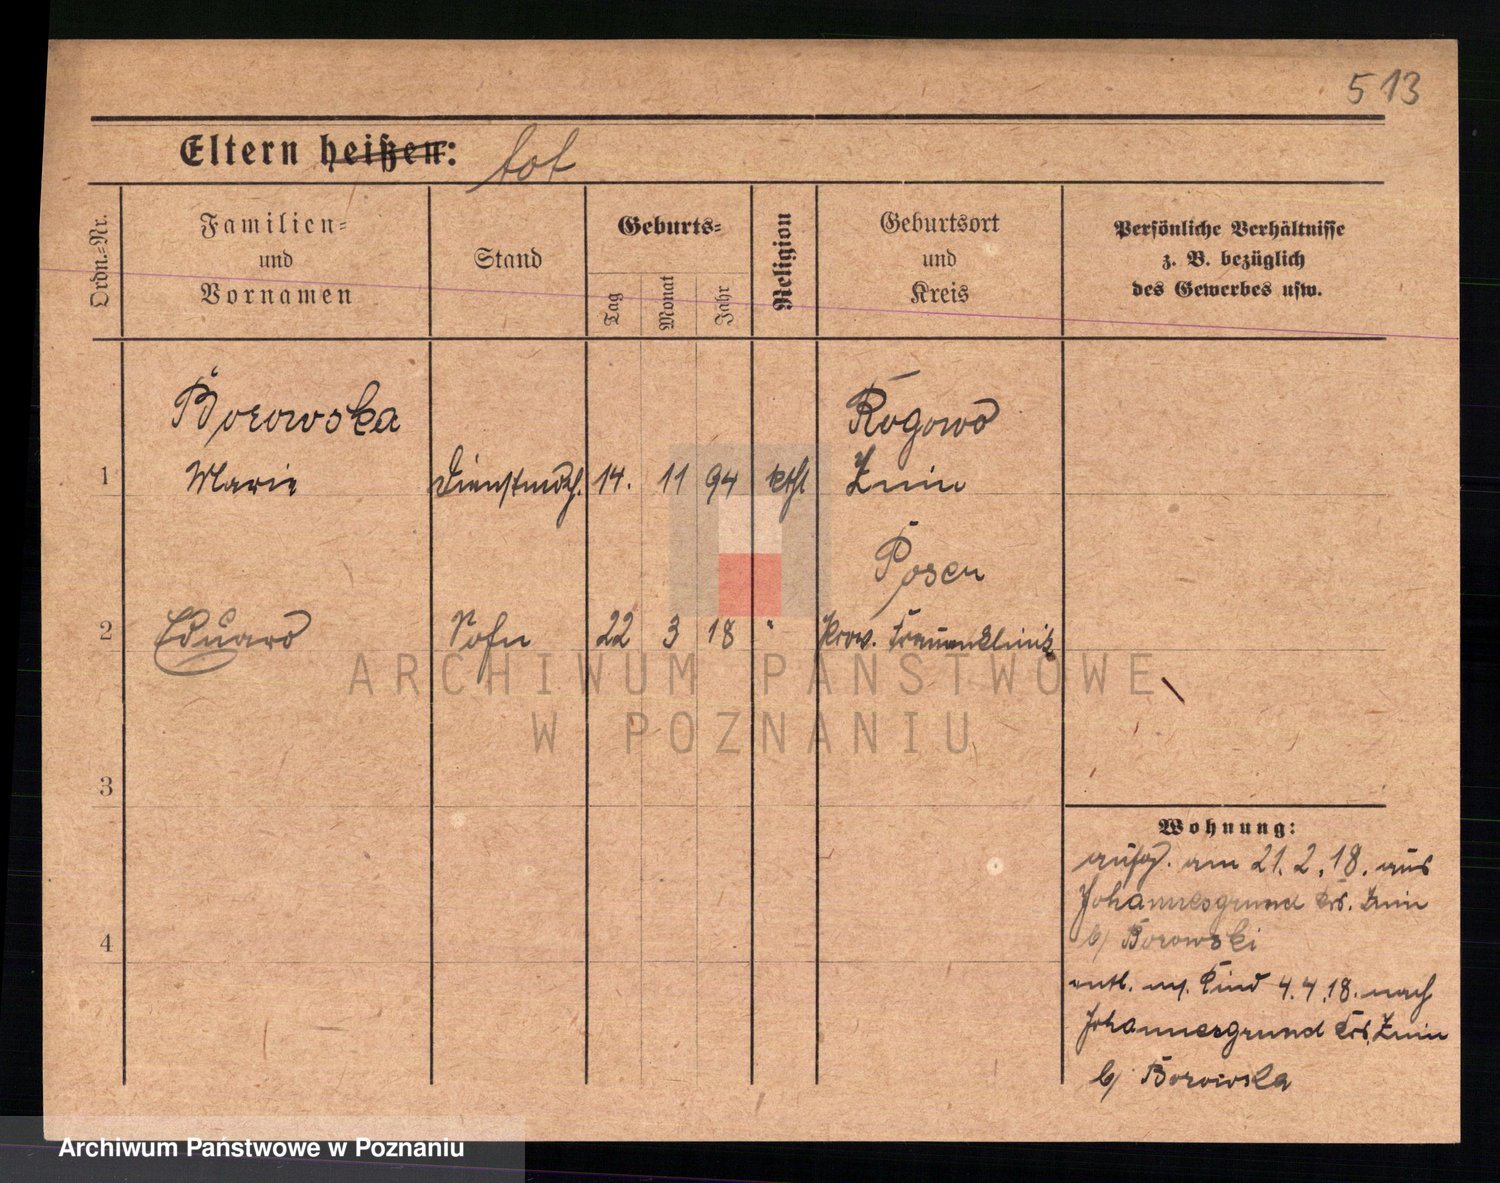 513
Eltern heißen: tot
Ordn.-Nr.
Familien-
und
Vornamen
Stand
Geburts-
Tag
Monat
Jahr
Religion
Geburtsort
und
Kreis
Persönliche Verhältnisse
z. B. bezüglich
des Gewerbes usw.
Borowska
Rogowo
1 Marie Dienstmdch. 14. 11 94 kthl Znin
Posen
2 Eduard Sohn 22 3 18 " Prov. Frauenklinik
3
4
Wohnung:
aufg. am 21.2.18. aus
Johannesgrund Krs. Znin
b/ Borowski
entl. m. Kind 4.4.18. nach
Johannesgrund Krs. Znin
b/ Borowska
ARCHIWUM PAŃSTWOWE
W POZNANIU
Archiwum Państwowe w Poznaniu